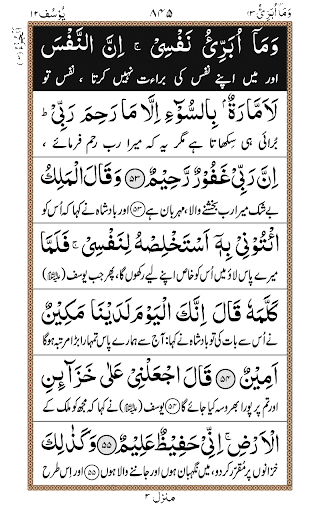 وَمَآ اُبَرِّئُ ١٣ ٨٤٥ يُوْسُف ١٢
وَمَآ اُبَرِّئُ نَفْسِيْ ۚ اِنَّ النَّفْسَ
اور میں اپنے نفس کی براءت نہیں کرتا ، نفس تو
لَاَمَّارَةٌۢ بِالسُّوْٓءِ اِلَّا مَا رَحِمَ رَبِّيْ ؕ
برائی ہی سکھاتا ہے مگر یہ کہ میرا رب رحم فرمائے ،
اِنَّ رَبِّيْ غَفُوْرٌ رَّحِيْمٌ ﴿٥٣﴾ وَقَالَ الْمَلِكُ
بے شک میرا رب بخشنے والا، مہربان ہے ﴿٥٣﴾ اور بادشاہ نے کہا کہ اُس کو
ائْتُوْنِيْ بِهٖٓ اَسْتَخْلِصْهُ لِنَفْسِيْ ۚ فَلَمَّا
میرے پاس لاؤ میں اُس کو خاص اپنے لیے رکھوں گا، پھر جب یوسف (علیہ السلام)
كَلَّمَهٗ قَالَ اِنَّكَ الْيَوْمَ لَدَيْنَا مَكِيْنٌ
نے اُس سے بات کی تو بادشاہ نے کہا: آج سے ہمارے پاس تمہارا بڑا مرتبہ ہوگا
اَمِيْنٌ ﴿٥٤﴾ قَالَ اجْعَلْنِيْ عَلٰى خَزَآئِنِ
اور تم پر پورا بھروسہ کیا جائے گا ﴿٥٤﴾ یوسف (علیہ السلام) نے کہا کہ مجھ کو ملک کے
الْاَرْضِ ۚ اِنِّيْ حَفِيْظٌ عَلِيْمٌ ﴿٥٥﴾ وَكَذٰلِكَ
خزانوں پر مقرر کر دو، میں نگہبان ہوں اور جاننے والا ہوں ﴿٥٥﴾ اور اِس طرح
منزل ٣